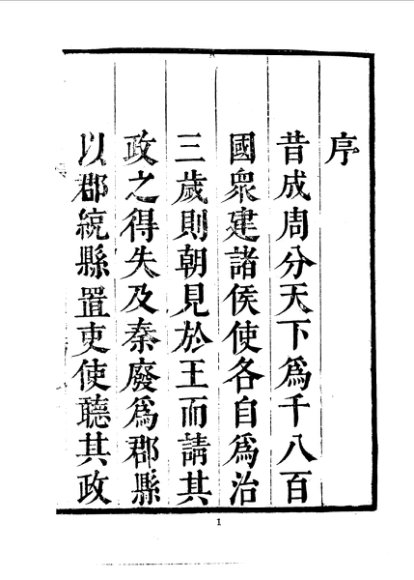 序
昔成周分天下爲千八百
國衆建諸侯使各自爲治
三歲則朝見於王而請其
政之得失及秦廢爲郡縣
以郡統縣置吏使聽其政
1